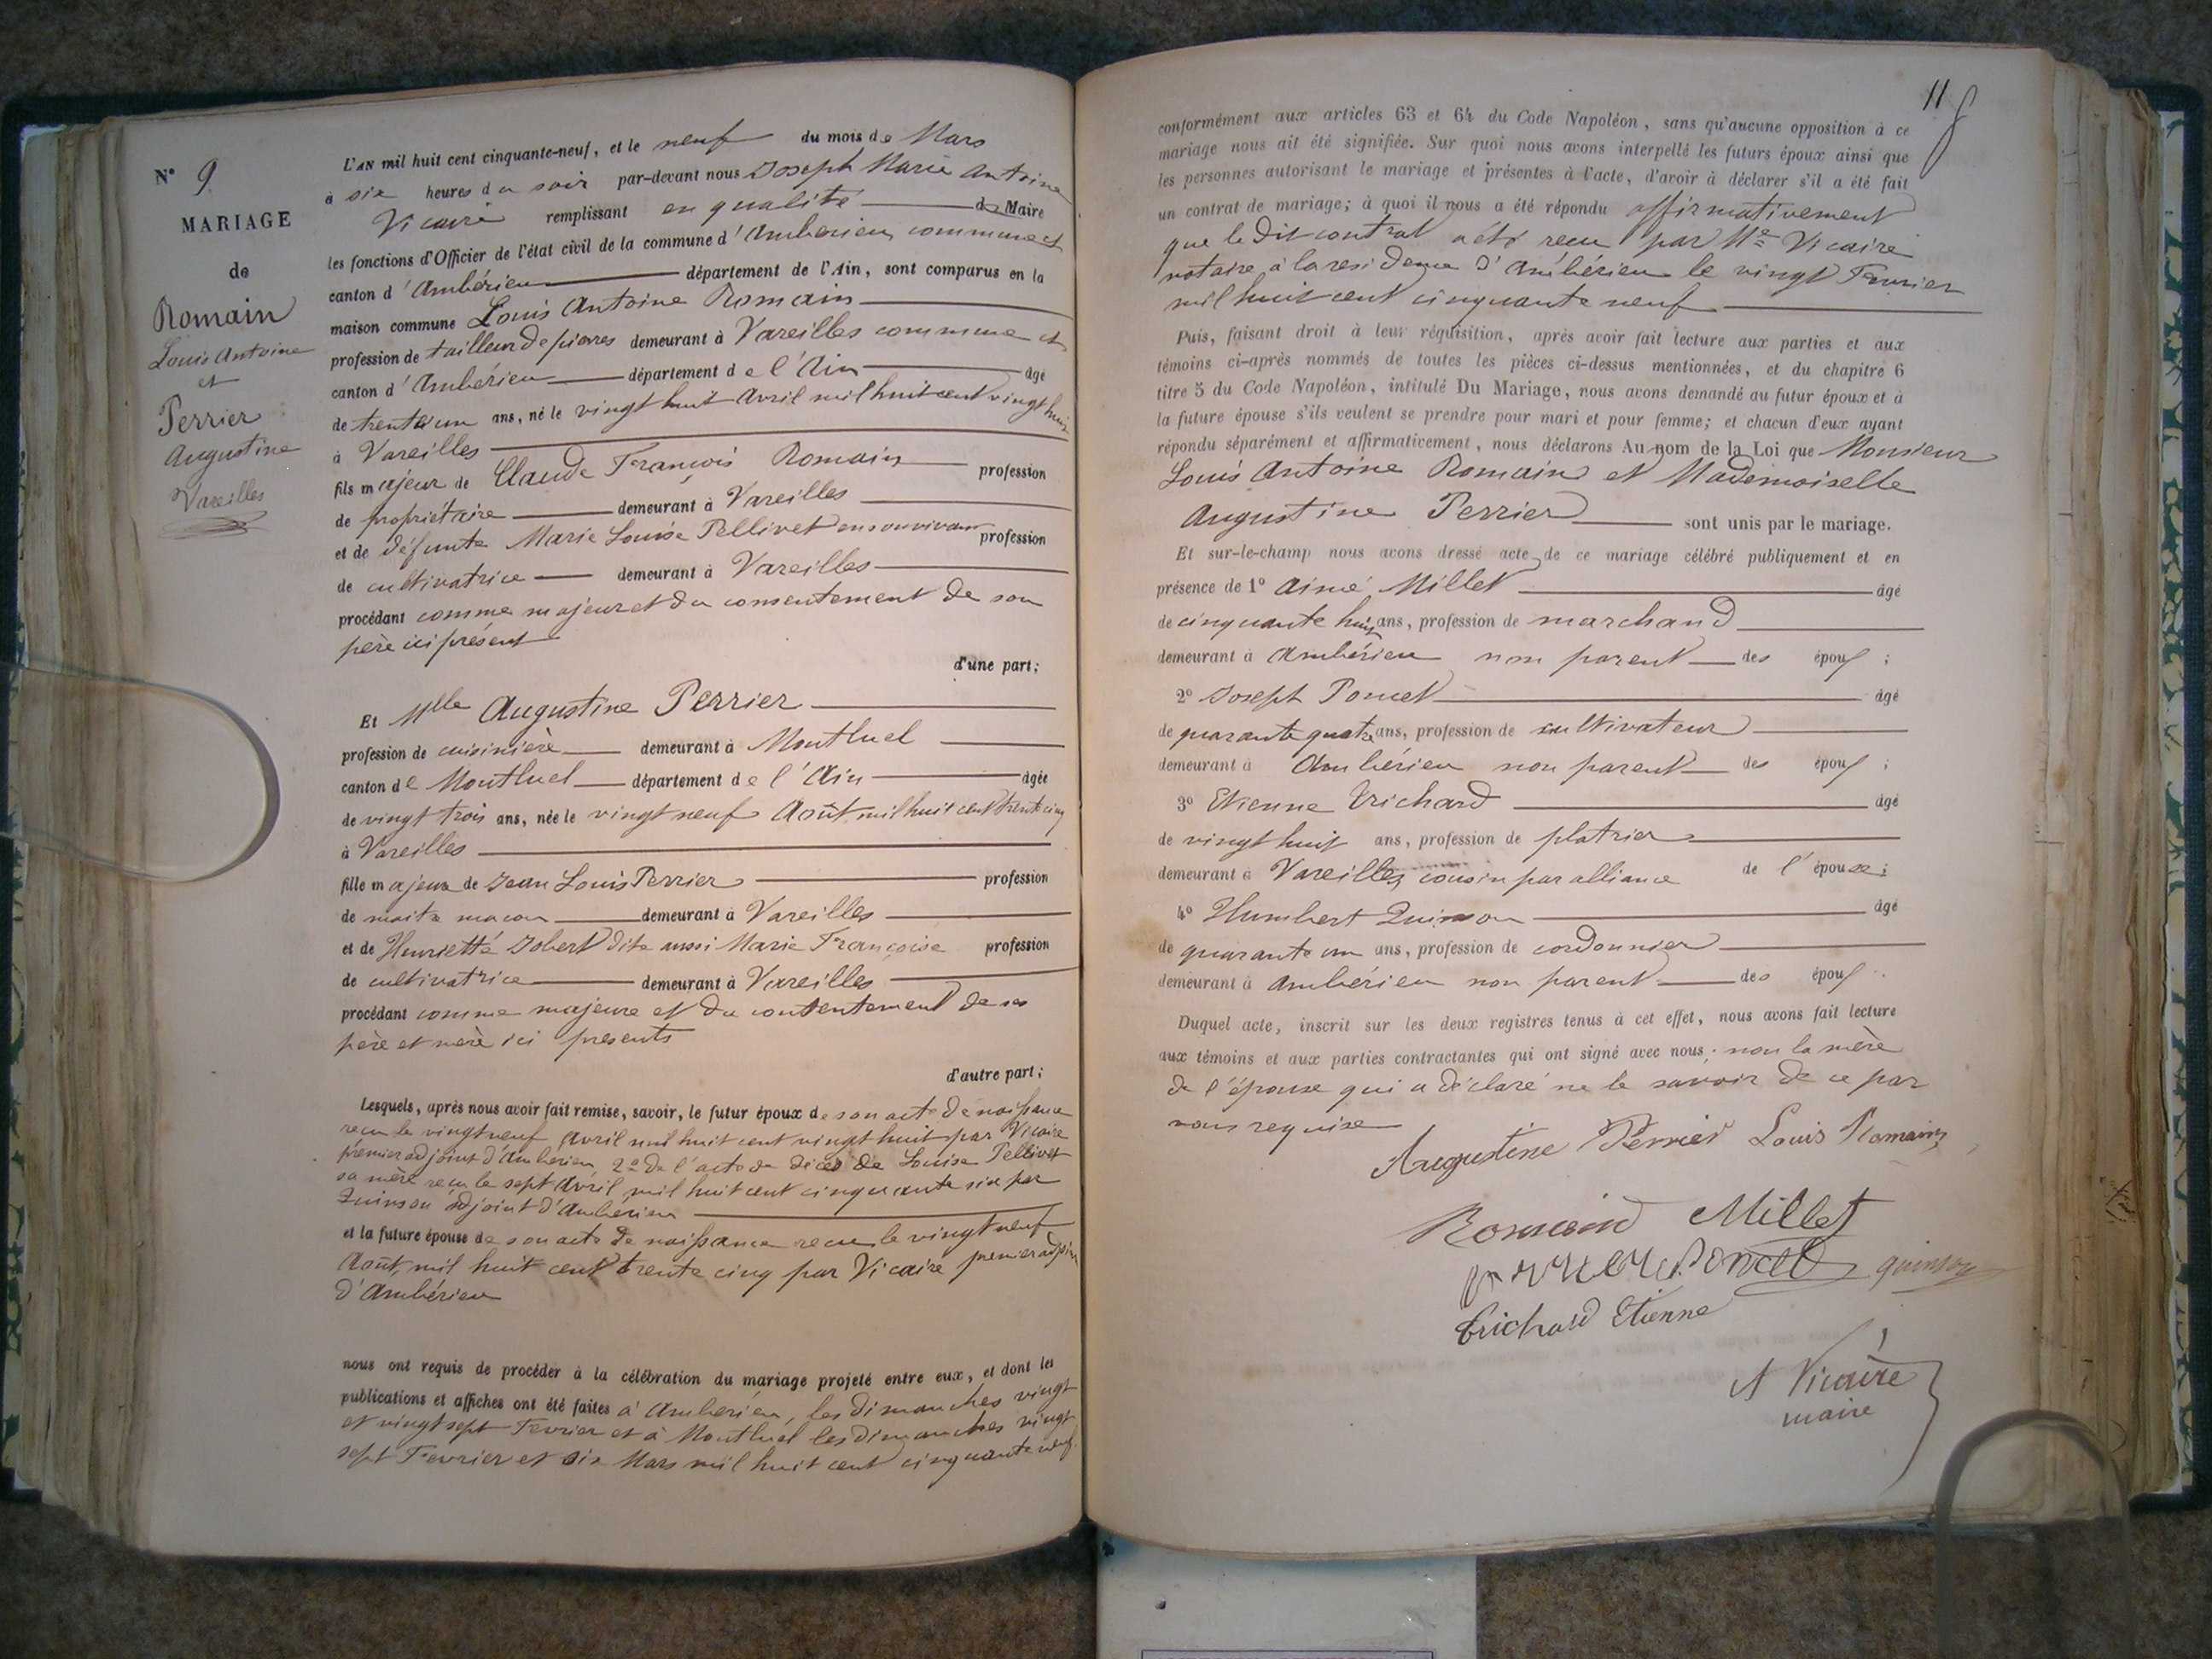 N° 9
MARIAGE
de
Romain
Louis Antoine
et
Perrier
Augustine
Vareilles
L'AN mil huit cent cinquante-neuf, et le neuf du mois de Mars
à six heures du soir par-devant nous Joseph Marie Antoine
Vicaire remplissant en qualité de Maire
les fonctions d'Officier de l'état civil de la commune d'Ambérieu commune et
canton d'Ambérieu département de l'Ain, sont comparus en la
maison commune Louis Antoine Romain
profession de tailleur de pierres demeurant à Vareilles commune et
canton d'Ambérieu département de l'Ain âgé
de trente un ans, né le vingt huit Avril mil huit cent vingt huit
à Vareilles
fils majeur de Claude François Romain profession
de propriétaire demeurant à Vareilles
et de défunte Marie Louise Pellivet en son vivant profession
de cultivatrice demeurant à Vareilles
procédant comme majeur et du consentement de son
père ici présent
d'une part;
Et Mlle Augustine Perrier
profession de cuisinière demeurant à Montluel
canton de Montluel département de l'Ain âgée
de vingt trois ans, née le vingt neuf Août mil huit cent trente cinq
à Vareilles
fille majeure de Jean Louis Perrier profession
de maitre macon demeurant à Vareilles
et de Henriette Jobert dite aussi Marie Françoise profession
de cultivatrice demeurant à Vareilles
procédant comme majeure et du consentement de ses
père et mère ici presents
d'autre part;
Lesquels, après nous avoir fait remise, savoir, le futur époux de son acte de naissance
recu le vingt neuf Avril mil huit cent vingt huit par Vicaire
premier adjoint d'Ambérieu, 2° de l'acte de décès de Louise Pellivet
sa mère recu le sept Avril mil huit cent cinquante six par
Quinson adjoint d'Ambérieu
et la future épouse de son acte de naissance recu le vingt neuf
Août mil huit cent trente cinq par Vicaire premier adjoint
d'Ambérieu
nous ont requis de procéder à la célébration du mariage projeté entre eux, et dont les
publications et affiches ont été faites à Ambérieu, les dimanches vingt
et vingt sept Fevrier et à Montluel les dimanches vingt
sept Fevrier et six Mars mil huit cent cinquante neuf.
11
conformément aux articles 63 et 64 du Code Napoléon, sans qu'aucune opposition à ce
mariage nous ait été signifiée. Sur quoi nous avons interpellé les futurs époux ainsi que
les personnes autorisant le mariage et présentes à l'acte, d'avoir à déclarer s'il a été fait
un contrat de mariage; à quoi il nous a été répondu affirmativement
que le dit contrat a été recu par Me Vicaire
notaire à la residence d'Ambérieu le vingt Fevrier
mil huit cent cinquante neuf
Puis, faisant droit à leur réquisition, après avoir fait lecture aux parties et aux
témoins ci-après nommés de toutes les pièces ci-dessus mentionnées, et du chapitre 6
titre 5 du Code Napoléon, intitulé Du Mariage, nous avons demandé au futur époux et à
la future épouse s'ils veulent se prendre pour mari et pour femme; et chacun d'eux ayant
répondu séparément et affirmativement, nous déclarons Au nom de la Loi que Monsieur
Louis Antoine Romain et Mademoiselle
Augustine Perrier sont unis par le mariage.
Et sur-le-champ nous avons dressé acte de ce mariage célébré publiquement et en
présence de 1° Aimé Millet âgé
de cinquante huit ans, profession de marchand
demeurant à Ambérieu non parent des époux;
2° Joseph Poncet âgé
de quarante quatre ans, profession de cultivateur
demeurant à Ambérieu non parent des époux;
3° Etienne Trichard âgé
de vingt huit ans, profession de platrier
demeurant à Vareilles, cousin par alliance de l'épouse;
4° Humbert Quinson âgé
de quarante un ans, profession de cordonnier
demeurant à Ambérieu non parent des époux.
Duquel acte, inscrit sur les deux registres tenus à cet effet, nous avons fait lecture
aux témoins et aux parties contractantes qui ont signé avec nous; non la mère
de l'épouse qui a déclaré ne le savoir de ce par
nous requise
Augustine Perrier Louis Romain
Romain Millet
Poncet quinson
trichard Etienne
A Vicaire
maire